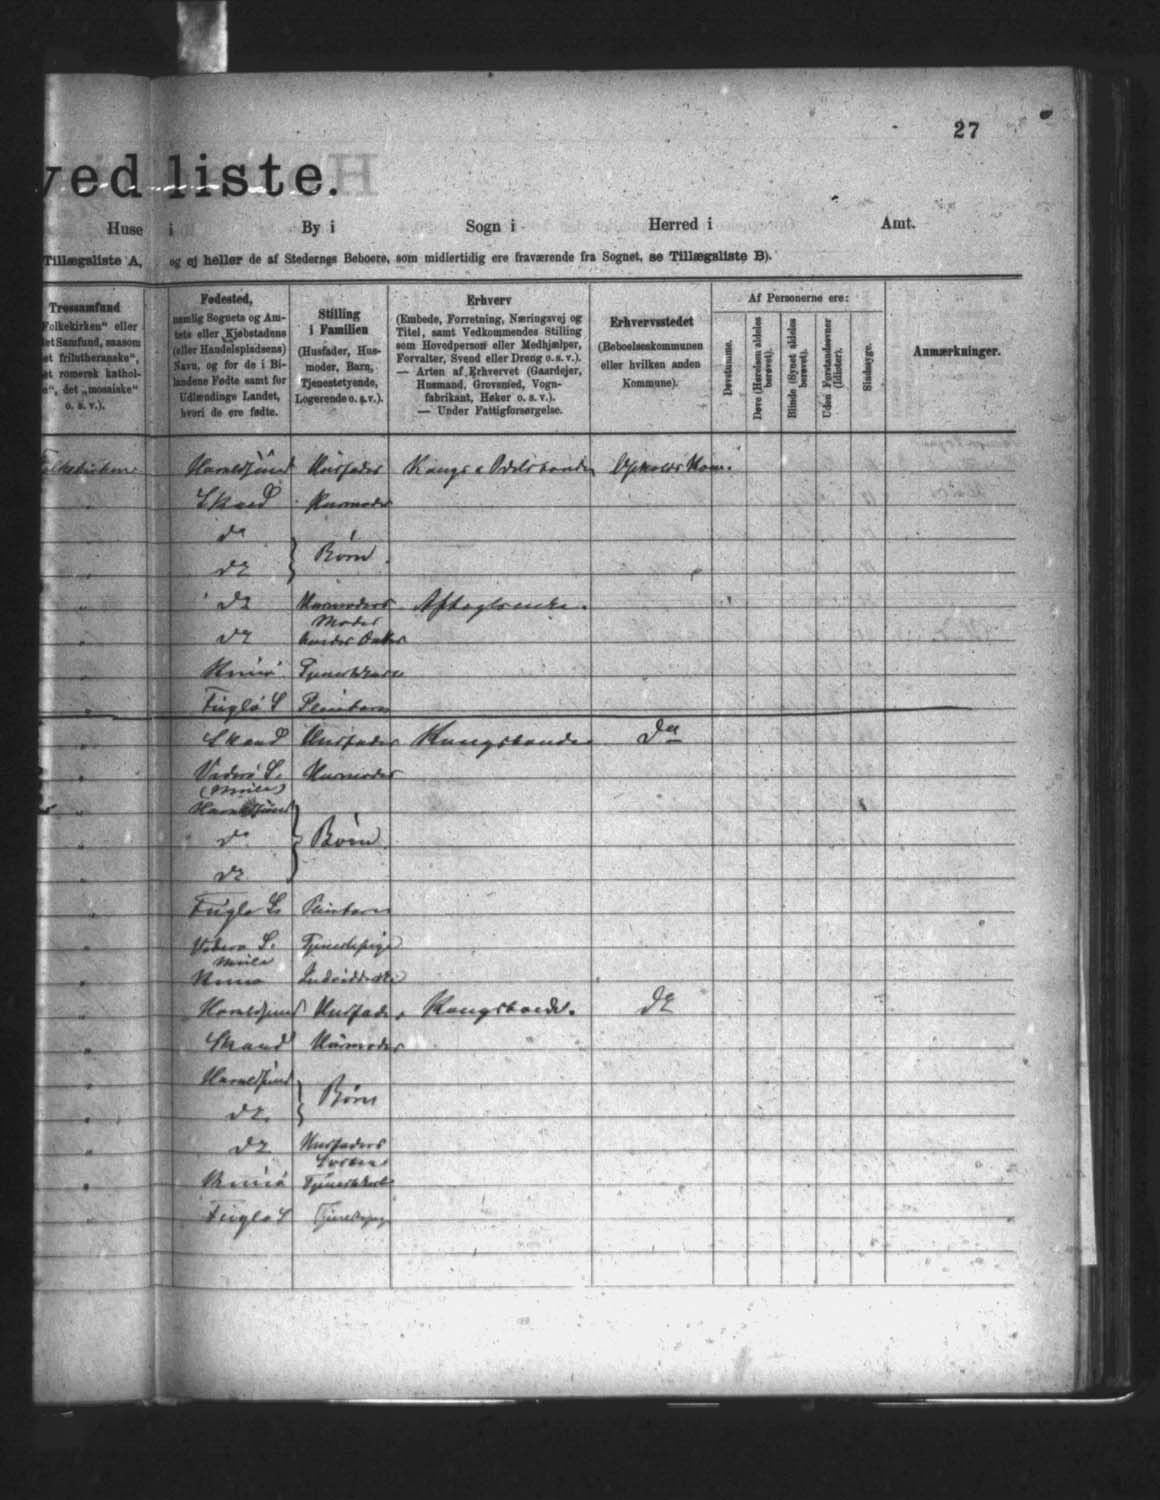 27
ved liste.
Huse i By i Sogn i Herred i Amt.
Tillægsliste A, og ej heller de af Stedernes Beboere, som midlertidig ere fraværende fra Sognet, se Tillægsliste B).
Trossamfund
Folkekirken" eller
et Samfund, saasom
et frilutheranske",
et romersk kathol-
e", det „mosaiske"
o. s. v.).
Fødested,
nemlig Sognets og Am-
tets eller Kjøbstadens
(eller Handelspladsens)
Navn, og for de i Bi-
landene Fødte samt for
Udlændinge Landet,
hvori de ere fødte.
Stilling
i Familien
(Husfader, Hus-
moder, Barn,
Tjenestetyende,
Logerende o. s. v.).
Erhverv
(Embede, Forretning, Næringsvej og
Titel, samt Vedkommendes Stilling
som Hovedperson eller Medhjælper,
Forvalter, Svend eller Dreng o. s. v.).
— Arten af Erhvervet (Gaardejer,
Husmand, Grovsmed, Vogn-
fabrikant, Høker o. s. v.).
— Under Fattigforsørgelse.
Erhvervsstedet
(Beboelseskommunen
eller hvilken anden
Kommune).
Af Personerne ere:
Døvstumme.
Døve (Hørelsen aldeles
berøvet).
Blinde (Synet aldeles
berøvet).
Uden Forstandsevner
(Idioter).
Sindssyge.
Anmærkninger.
Folkekirken Haraldsund Husfader Kongs & Odelsbonde Opholds Kom.
" Skaad Husmoder
" do
" do Børn
" do Husmoders Moder Aftægts
" do
" Kunø Tjenestekarl
" Fuglø S Pleiebarn
" Skaad Husfader Kongsbonde do
" Viderø S. Husmoder
(Mule)
" Haraldsund
" do Børn
" do
" Fuglø S. Pleiebarn
" Viderø S. Tjenestepige
Mule
" Kunø
" Haraldsund Husfader Kongsbonde. do
" Skaad Husmoder
" Haraldsund
" do Børn
" do Husfaders
" Kunø Tjenestekarl
" Fuglø S Tjenestepige